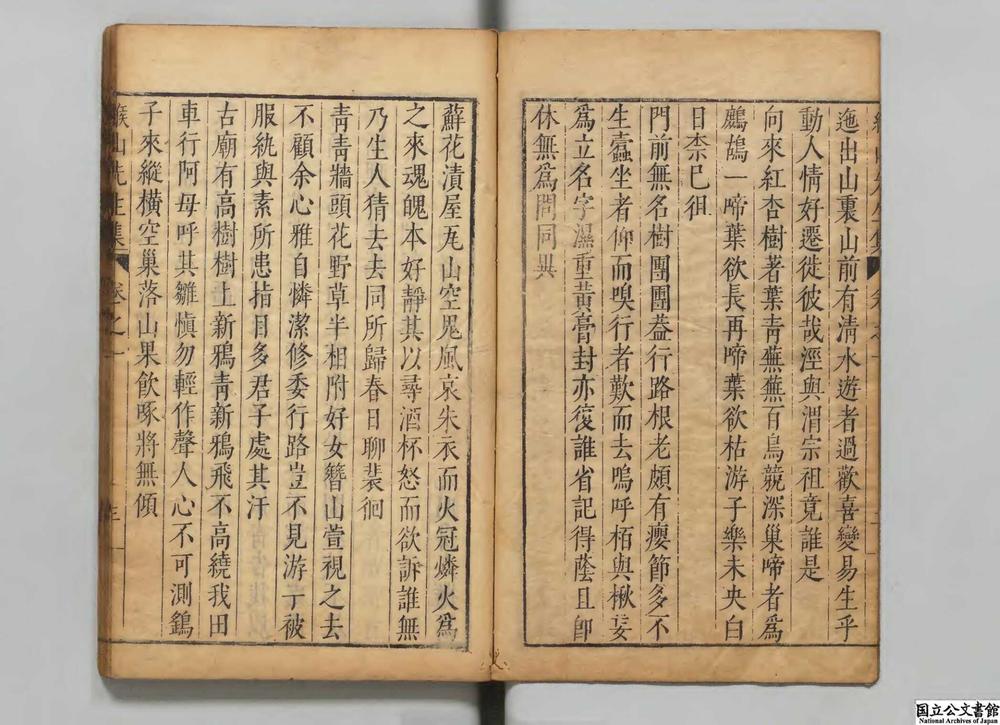 迤出山裏山前有清水遊者過歡喜變易生乎
動人情好遷徙彼哉涇與渭宗祖竟誰是
向來紅杏樹著葉青蕪蕪百鳥競深巢啼者爲
鷓鴣一啼葉欲長再啼葉欲枯游子樂未央白
日柰已徂
門前無名樹團團葢行路根老頗有癭節多不
生蠹坐者仰而嗅行者歎而去嗚呼栢與楸妄
爲立名字濕重黃膏封亦復誰省記得蔭且卽
休無爲問同異
蘚花漬屋瓦山空鬼風哀朱衣而火冠燐火爲
之來魂魄本好靜其以尋酒杯怒而欲訴誰無
乃生人猜去去同所歸春日聊裴徊
靑靑牆頭花野草半相附好女簪山萱視之去
不顧余心雅自憐潔修委行路豈不見游子被
服紈與素所患指目多君子處其汙
古廟有高樹樹上新鴉靑新鴉飛不高繞我田
車行阿母呼其雛愼勿輕作聲人心不可測鷂
子來縱橫空巢落山果飮啄將無傾
先生集 卷之一
國立公文書館
National Archives of Japan